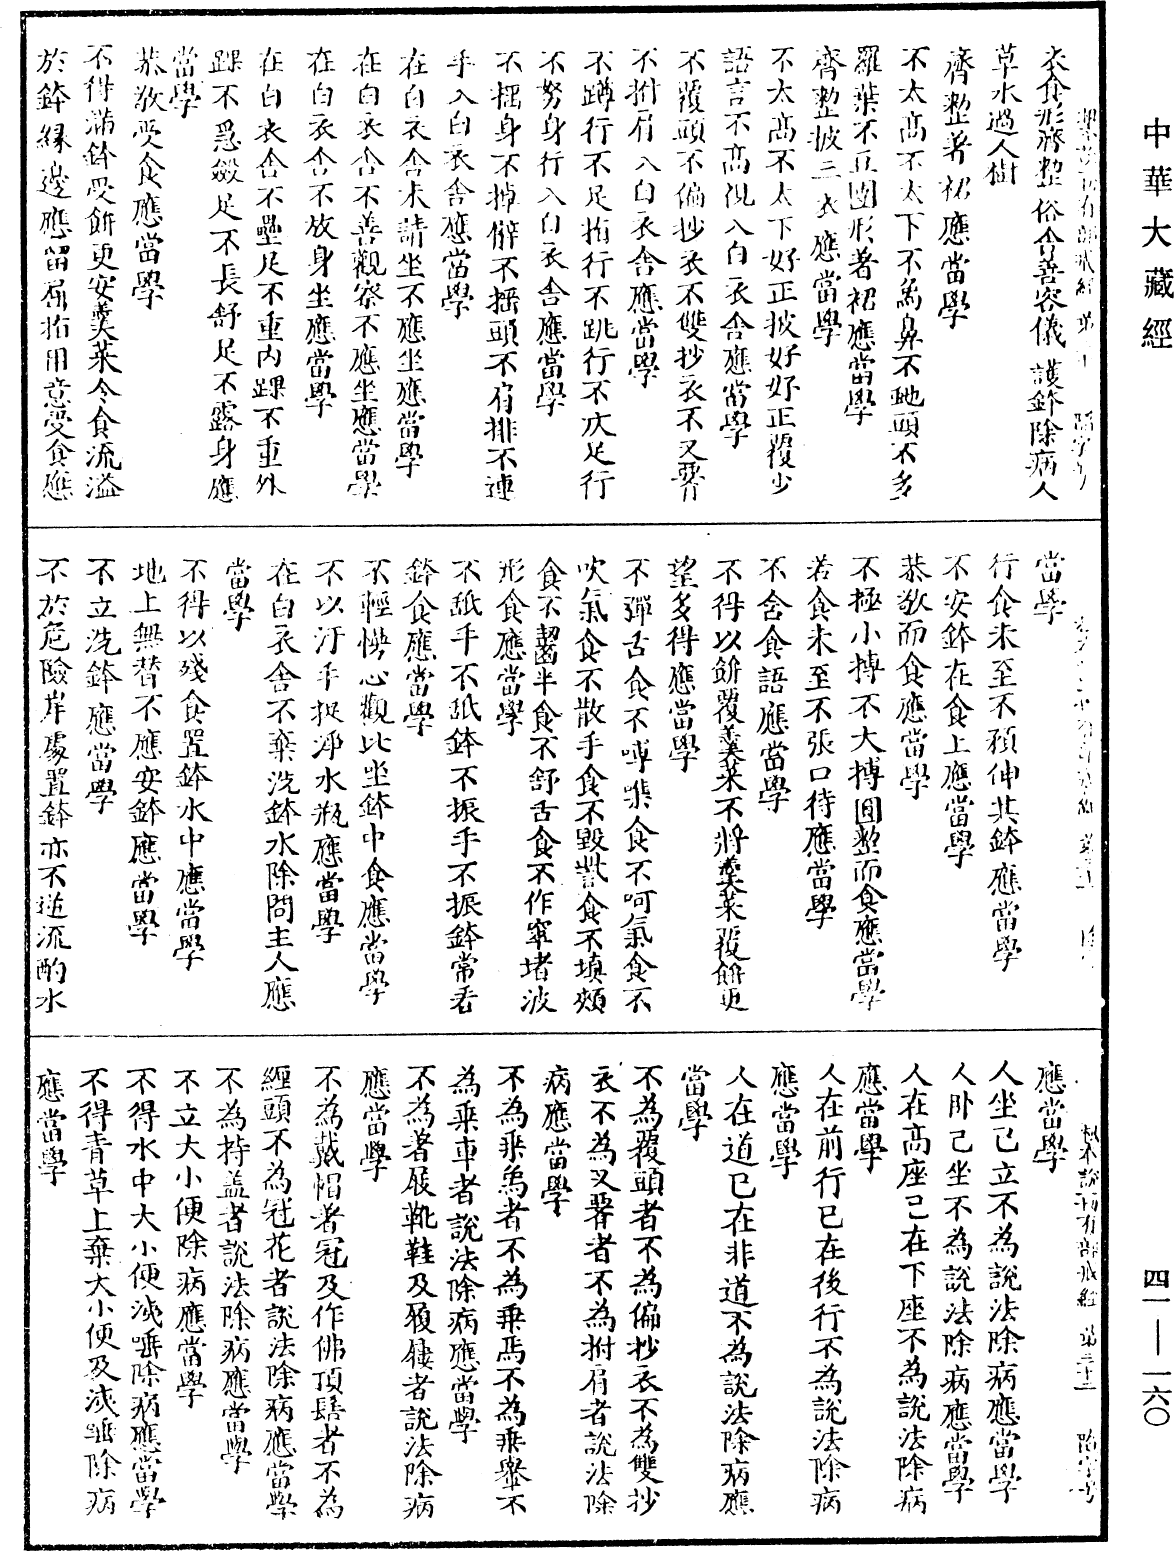 中華大藏經
衣食形齊整俗舍善容儀 護鉢除病人
草水過人樹
齊整著裙應當學
不太高不太下不為鼻不虵頭不多
羅葉不豆團形著裙應當學
齊整披三衣應當學
不太高不太下好正披好好正覆少
語言不高視入白衣舍應當學
不覆頭不偏抄衣不雙抄衣不叉腰
不拊肩入白衣舍應當學
不蹲行不足指行不跳行不仄足行
不努身行入白衣舍應當學
不搖身不掉臂不搖頭不肩排不連
手入白衣舍應當學
在白衣舍未請坐不應坐應當學
在白衣舍不善觀察不應坐應當學
在白衣舍不放身坐應當學
在白衣舍不壘足不重內踝不重外
踝不急斂足不長舒足不露身應
當學
恭敬受食應當學
不得滿鉢受餅更安羹菜令食流溢
於鉢緣邊應留屈指用意受食應
當學
行食未至不預伸其鉢應當學
不安鉢在食上應當學
恭敬而食應當學
不極小摶不大摶圓整而食應當學
若食未至不張口待應當學
不含食語應當學
不得以餅覆羹菜不將羹菜覆餅更
望多得應當學
不彈舌食不㗘㗱食不呵氣食不
吹氣食不散手食不毀訾食不填頰
食不齧半食不舒舌食不作窣堵波
形食應當學
不舐手不舐鉢不振手不振鉢常看
鉢食應當學
不輕慢心觀比坐鉢中食應當學
不以汙手捉淨水瓶應當學
在白衣舍不棄洗鉢水除問主人應
當學
不得以殘食置鉢水中應當學
地上無替不應安鉢應當學
不立洗鉢應當學
不於危險岸處置鉢亦不逆流酌水
應當學
人坐己立不為說法除病應當學
人臥己坐不為說法除病應當學
人在高座己在下座不為說法除病
應當學
人在前行己在後行不為說法除病
應當學
人在道己在非道不為說法除病應
當學
不為覆頭者不為偏抄衣不為雙抄
衣不為叉腰者不為拊肩者說法除
病應當學
不為乘象者不為乘馬不為乘轝不
為乘車者說法除病應當學
不為著屐靴鞋及履屨者說法除病
應當學
不為戴帽者冠及作佛頂髻者不為
纏頭不為冠花者說法除病應當學
不為持蓋者說法除病應當學
不立大小便除病應當學
不得水中大小便洟唾除病應當學
不得青草上棄大小便及洟唾除病
應當學
四一——一六〇